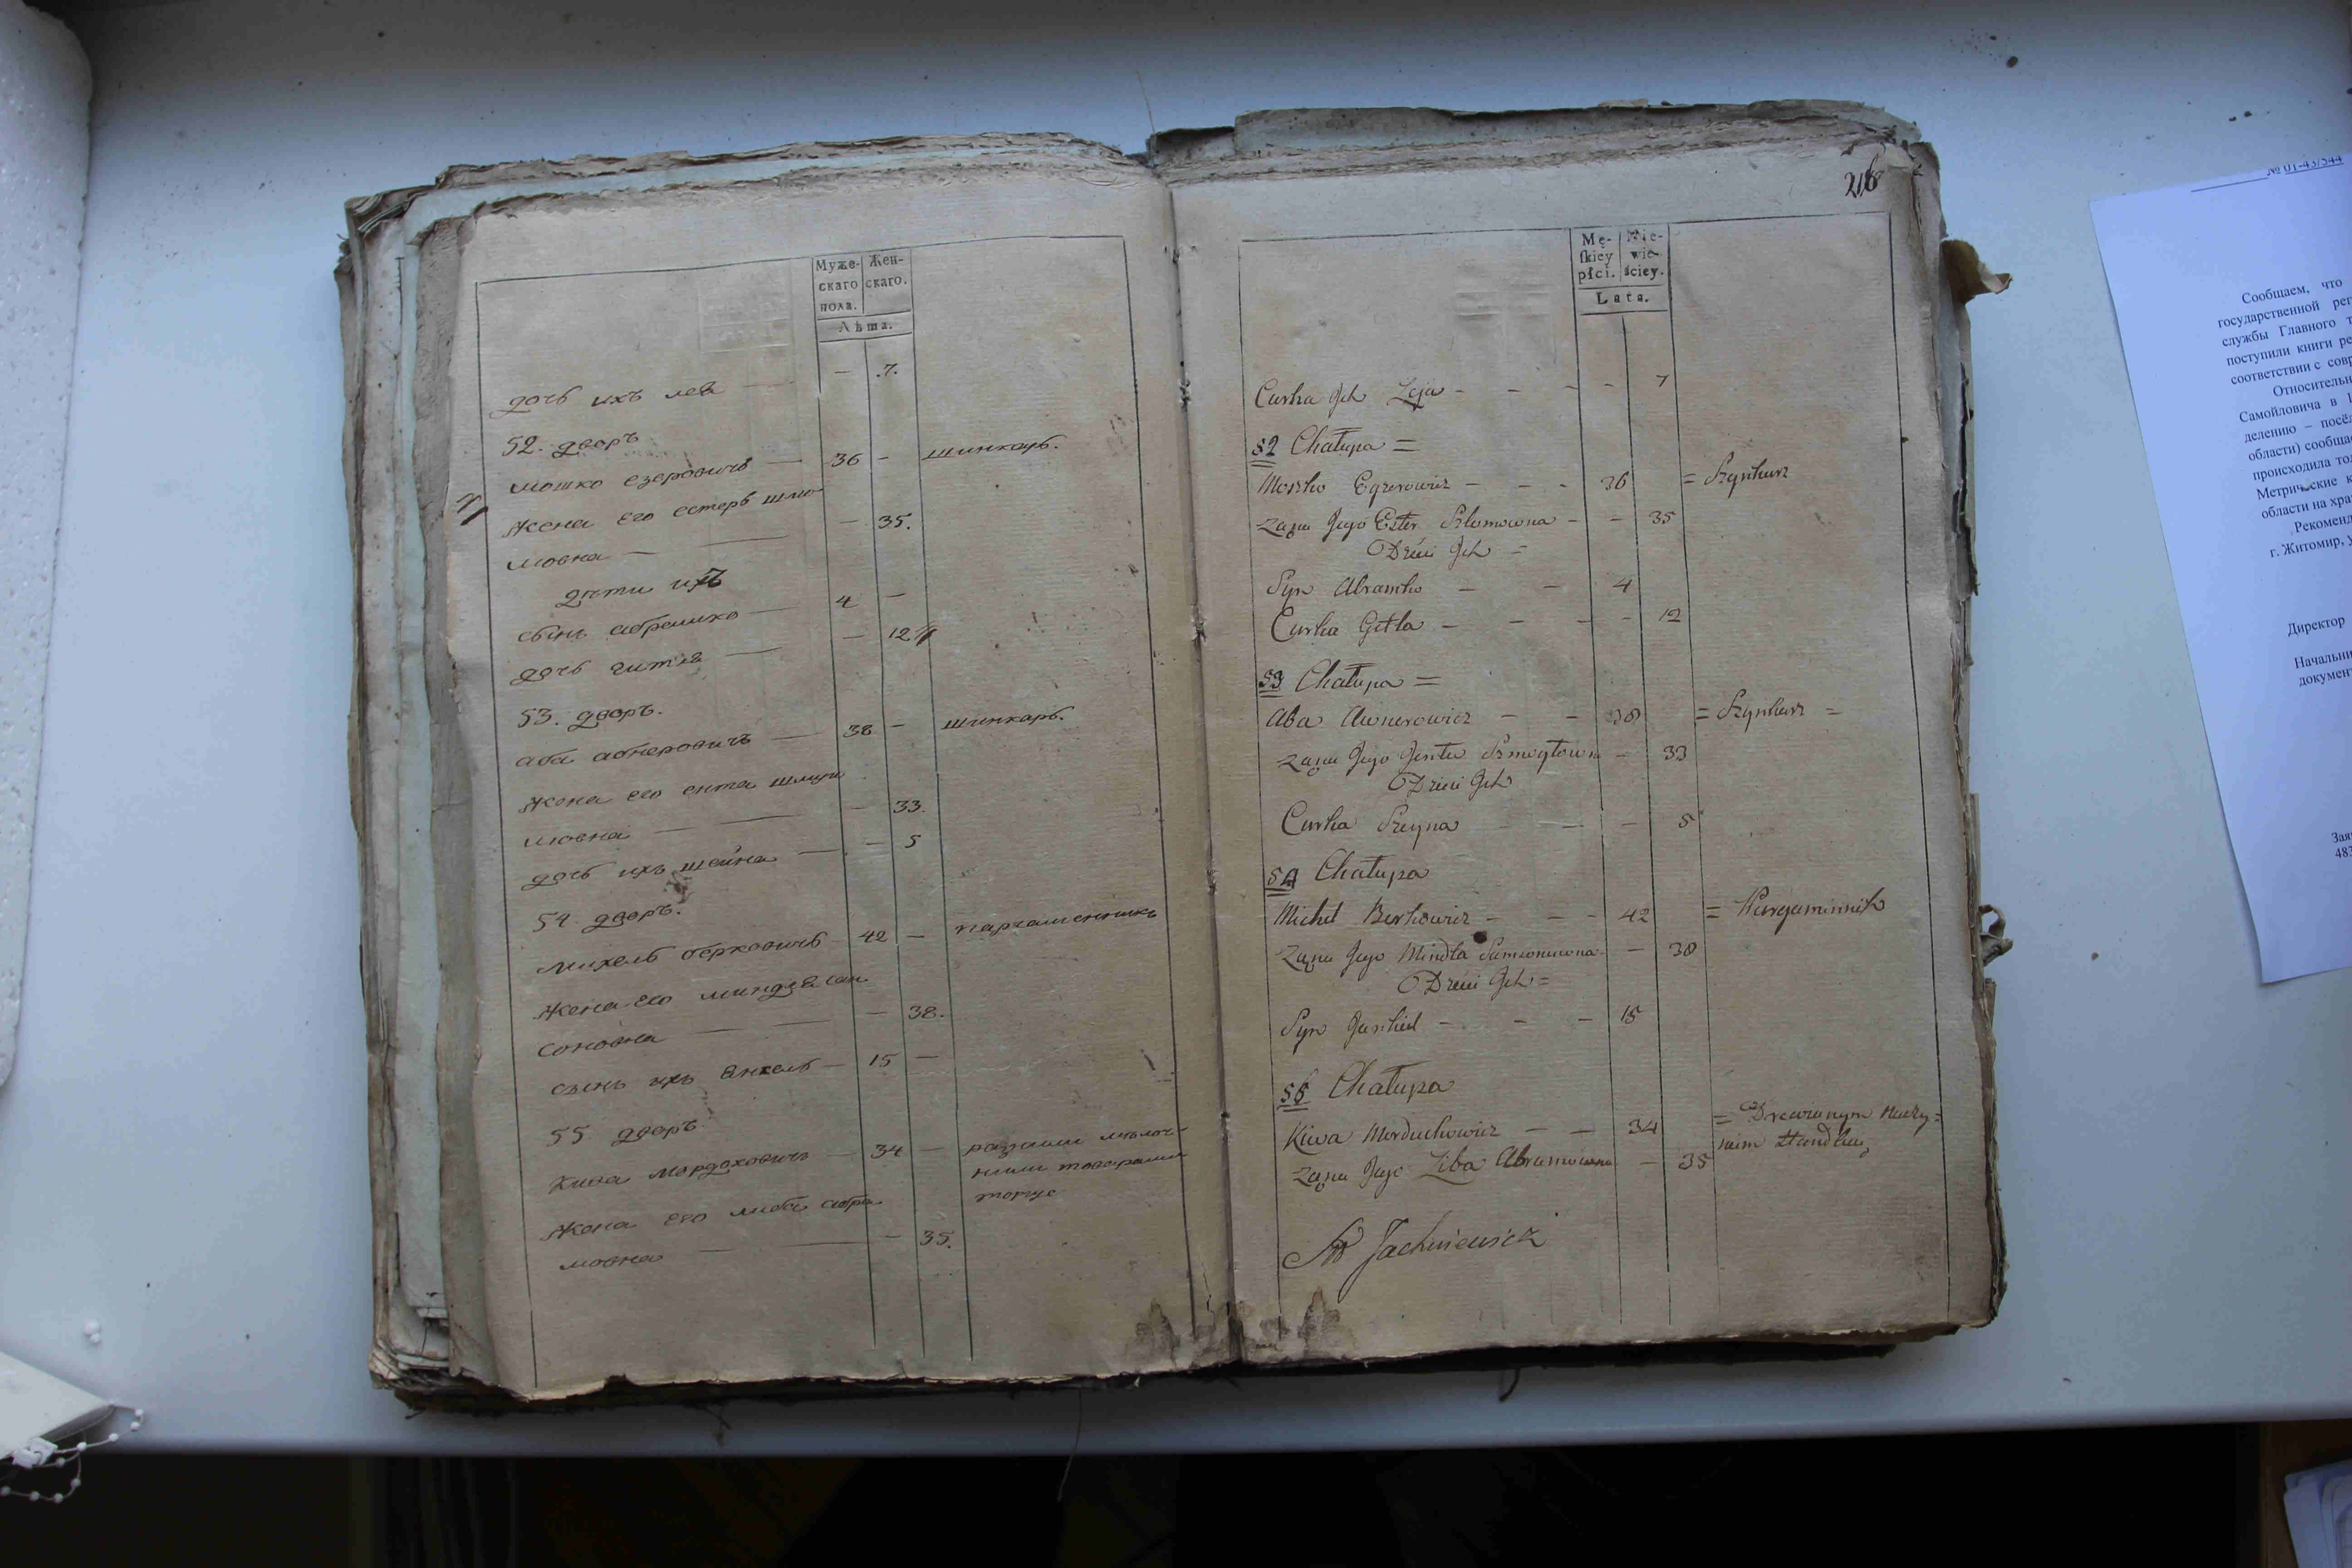 Муже-
скаго
пола.
Жен-
скаго.
Лѣта.
дочь ихъ лея — — 7.
52. дворъ
мошко езеровичъ — 36 — шинкарь.
жена его естерь шмо-
мовна — — — 35.
дѣти ихъ
сынъ абрамко — 4 —
дочь гитля — — 12
53. дворъ.
аба авнеровичъ — 38 — шинкарь.
жена его ента шмуи
ловна — — — 33.
дочь ихъ шейна — — 5
54. дворъ.
михель берковичъ — 42 — паргаменникъ
жена его миндля сам
соновна — — — 38.
сынъ ихъ янкель — 15 —
55. дворъ
кива мордоховичъ — 34 — разними мѣлоч-
ними товарами
торгує
жена его либа абра
мовна — — — 35.
216
Mę-
ſkiey
płci.
Nie-
wie-
ściey.
Lata.
Curka Jch Leja - - - - 7
52 Chałupa =
Moszko Egzerowicz - - - 36 = Szynkarz
Ząna Jego Ester Szlomowna - - 35
Dzieci Jch =
Syn Abramko - - 4
Curka Gitla - - - - 12
53 Chałupa =
Aba Awnerowicz - - 38 = Szynkarz =
Ząna Jego Jenta Szmoyłowna - 33
Dzieci Jch
Curka Szeyna - - 5
54 Chałupa
Michel Berkowicz - - - 42 = Pargaminnik
Ząna Jego Mindla Samsonowna - - 38
Dzieci Jch =
Syn Jankiel - - - 15
55 Chałupa
Kiwa Morduchowicz - - 34 = Drewianym naczy=
niem Handluie
Ząna Jego Liba Abramowna - 35
Jachniewicz
№ 01-43/544
Сообщаем, что
государственной рег
службы Главного т
поступили книги ре
соответствии с совр
Относительн
Самойловича в
делению – посё
области) сообща
происходила то
Метрические к
области на хра
Рекоменд
г. Житомир, у
Директор
Начальни
докумен
Зая
483